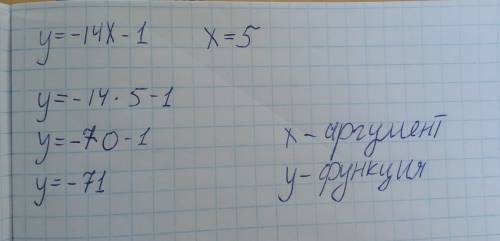 y=-14x-1 x=5
y=-14·5-1
y=-70-1 x-аргумент
y=-71 y-функция